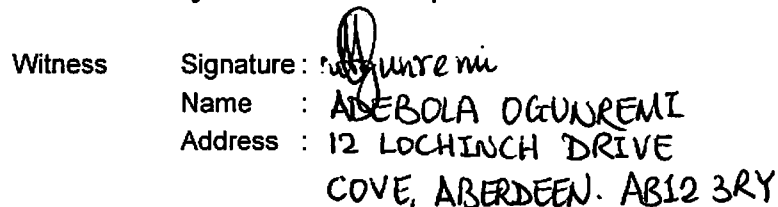 Witness Signature :
Name : ADEBOLA OGUNREMI
Address : 12 LOCHINCH DRIVE
COVE, ABERDEEN. AB12 3RY